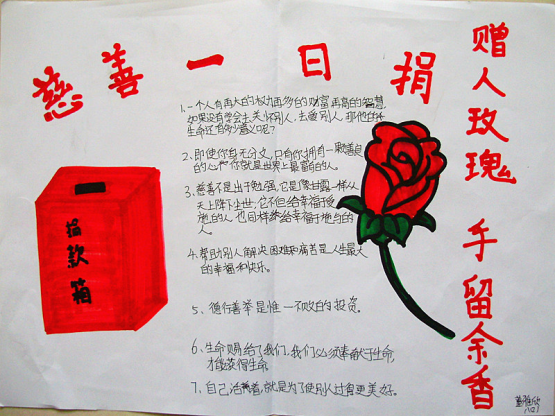 慈善一日捐
赠人玫瑰 手留余香
捐款箱
1、一个人有再大的权力再多的财富再高的智慧,
如果没有学会去关怀别人,去爱别人,那他的
生命还有多少意义呢?
2、即使你身无分文,只有你拥有一颗善良
的心,你就是世界上最富的人。
3、慈善不是出于勉强,它是像甘露一样从
天上降下尘世;它不但给幸福于受
施的人,也同样给幸福于施与的
人。
4、帮助别人解决困难和痛苦是人生最大
的幸福和快乐。
5、德行善举是惟一不败的投资。
6、生命赐给了我们,我们必须奉献于生命,
才能获得生命
7、自己活着,就是为了使别人过得更美好。